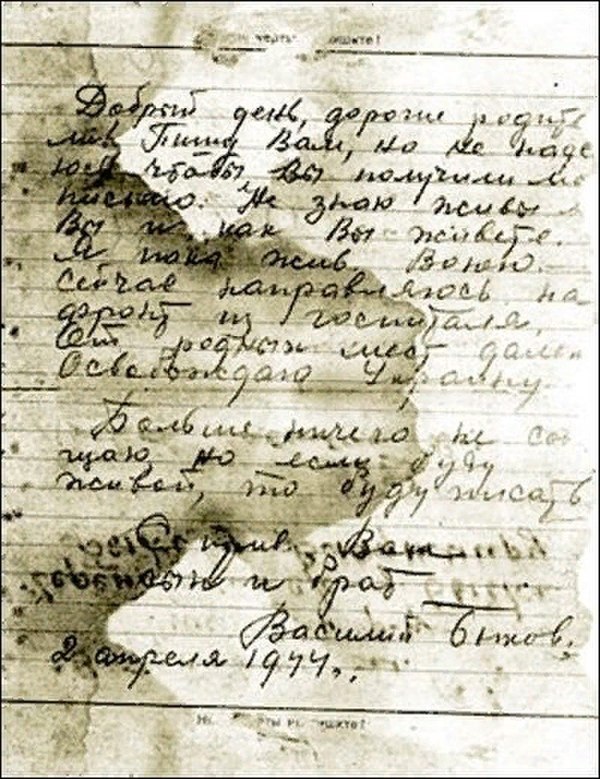 черты пишите!
Добрый день, дорогие родите
ли. Пишу Вам, но не наде
юсь чтобы Вы получили мо
письмо. Не знаю живы
Вы и как Вы живете.
Я пока жив. Воюю.
Сейчас направляюсь на
фронт из госпиталя.
От родных мест далек
Освобождаю Украину.
Больше ничего не соо
щаю, но если буду
живой, то буду писать
С прив. Ваш
сын и брат
Василий Быков.
2 апреля 1944 г.